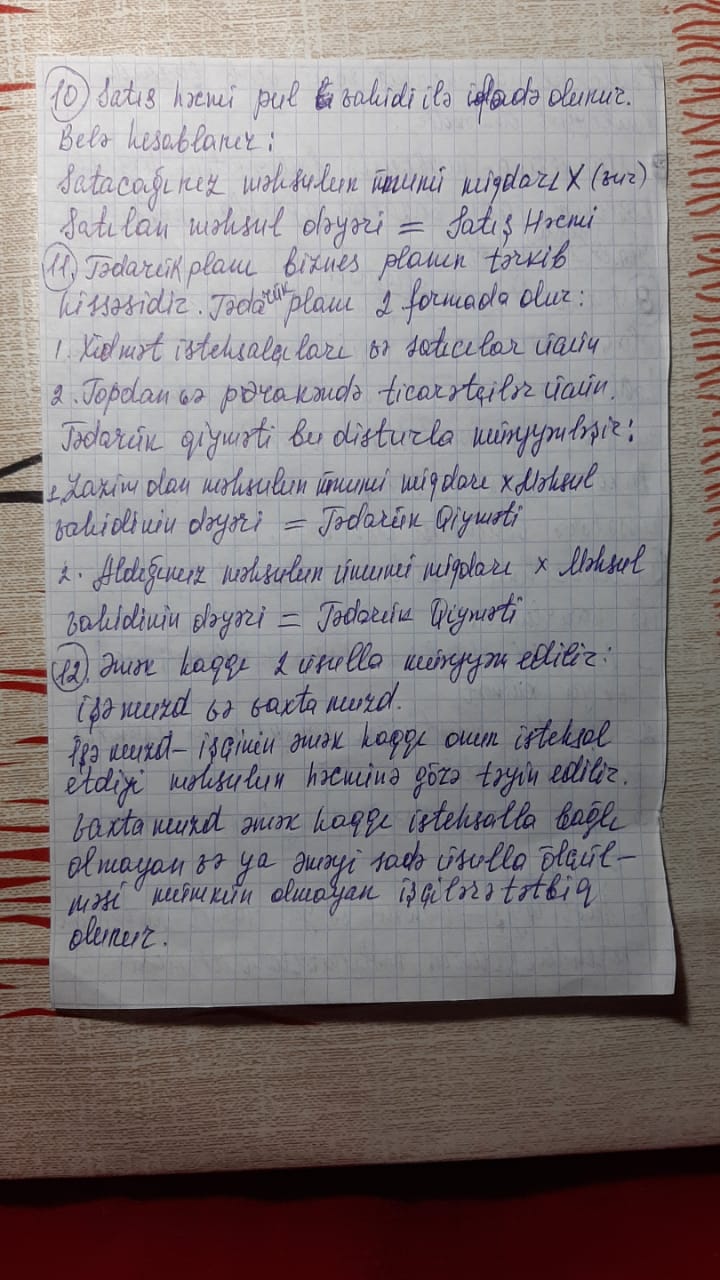 10 Satış həcmi pul vahidi ilə ifadə olunur.
Belə hesablanır:
Satacağınız məhsulun ümumi miqdarı X (vur)
Satılan məhsul dəyəri = Satış Həcmi
11. Tədarük planı biznes planın tərkib
hissəsidir. Tədarük planı 2 formada olur:
1. Xidmət istehsalçıları və satıcılar üçün
2. Topdan və pərakəndə ticarətçilər üçün.
Tədarük qiyməti bu düsturla müəyyənləşir:
1. Lazım olan məhsulun ümumi miqdarı x Məhsul
vahidinin dəyəri = Tədarük Qiyməti
2. Aldığınız məhsulun ümumi miqdarı x Məhsul
vahidinin dəyəri = Tədarük Qiyməti
12. Əmək haqqı 2 üsulla müəyyən edilir:
işə muzd və vaxta muzd.
İşə muzd – işçinin əmək haqqı onun istehsal
etdiyi məhsulun həcminə görə təyin edilir.
Vaxta muzd əmək haqqı istehsalla bağlı
olmayan və ya əməyi sadə üsulla ölçül-
məsi mümkün olmayan işçilərə tətbiq
olunur.